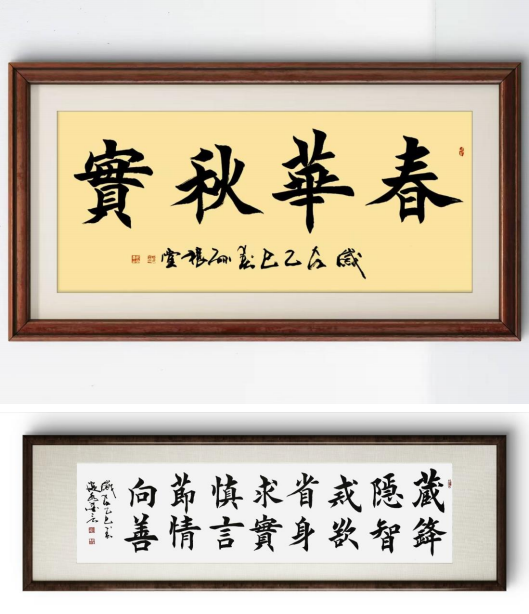 春華秋實
歲在乙巳
藏鋒
隱智
戒欲
省身
求實
慎言
節情
向善
歲在乙巳